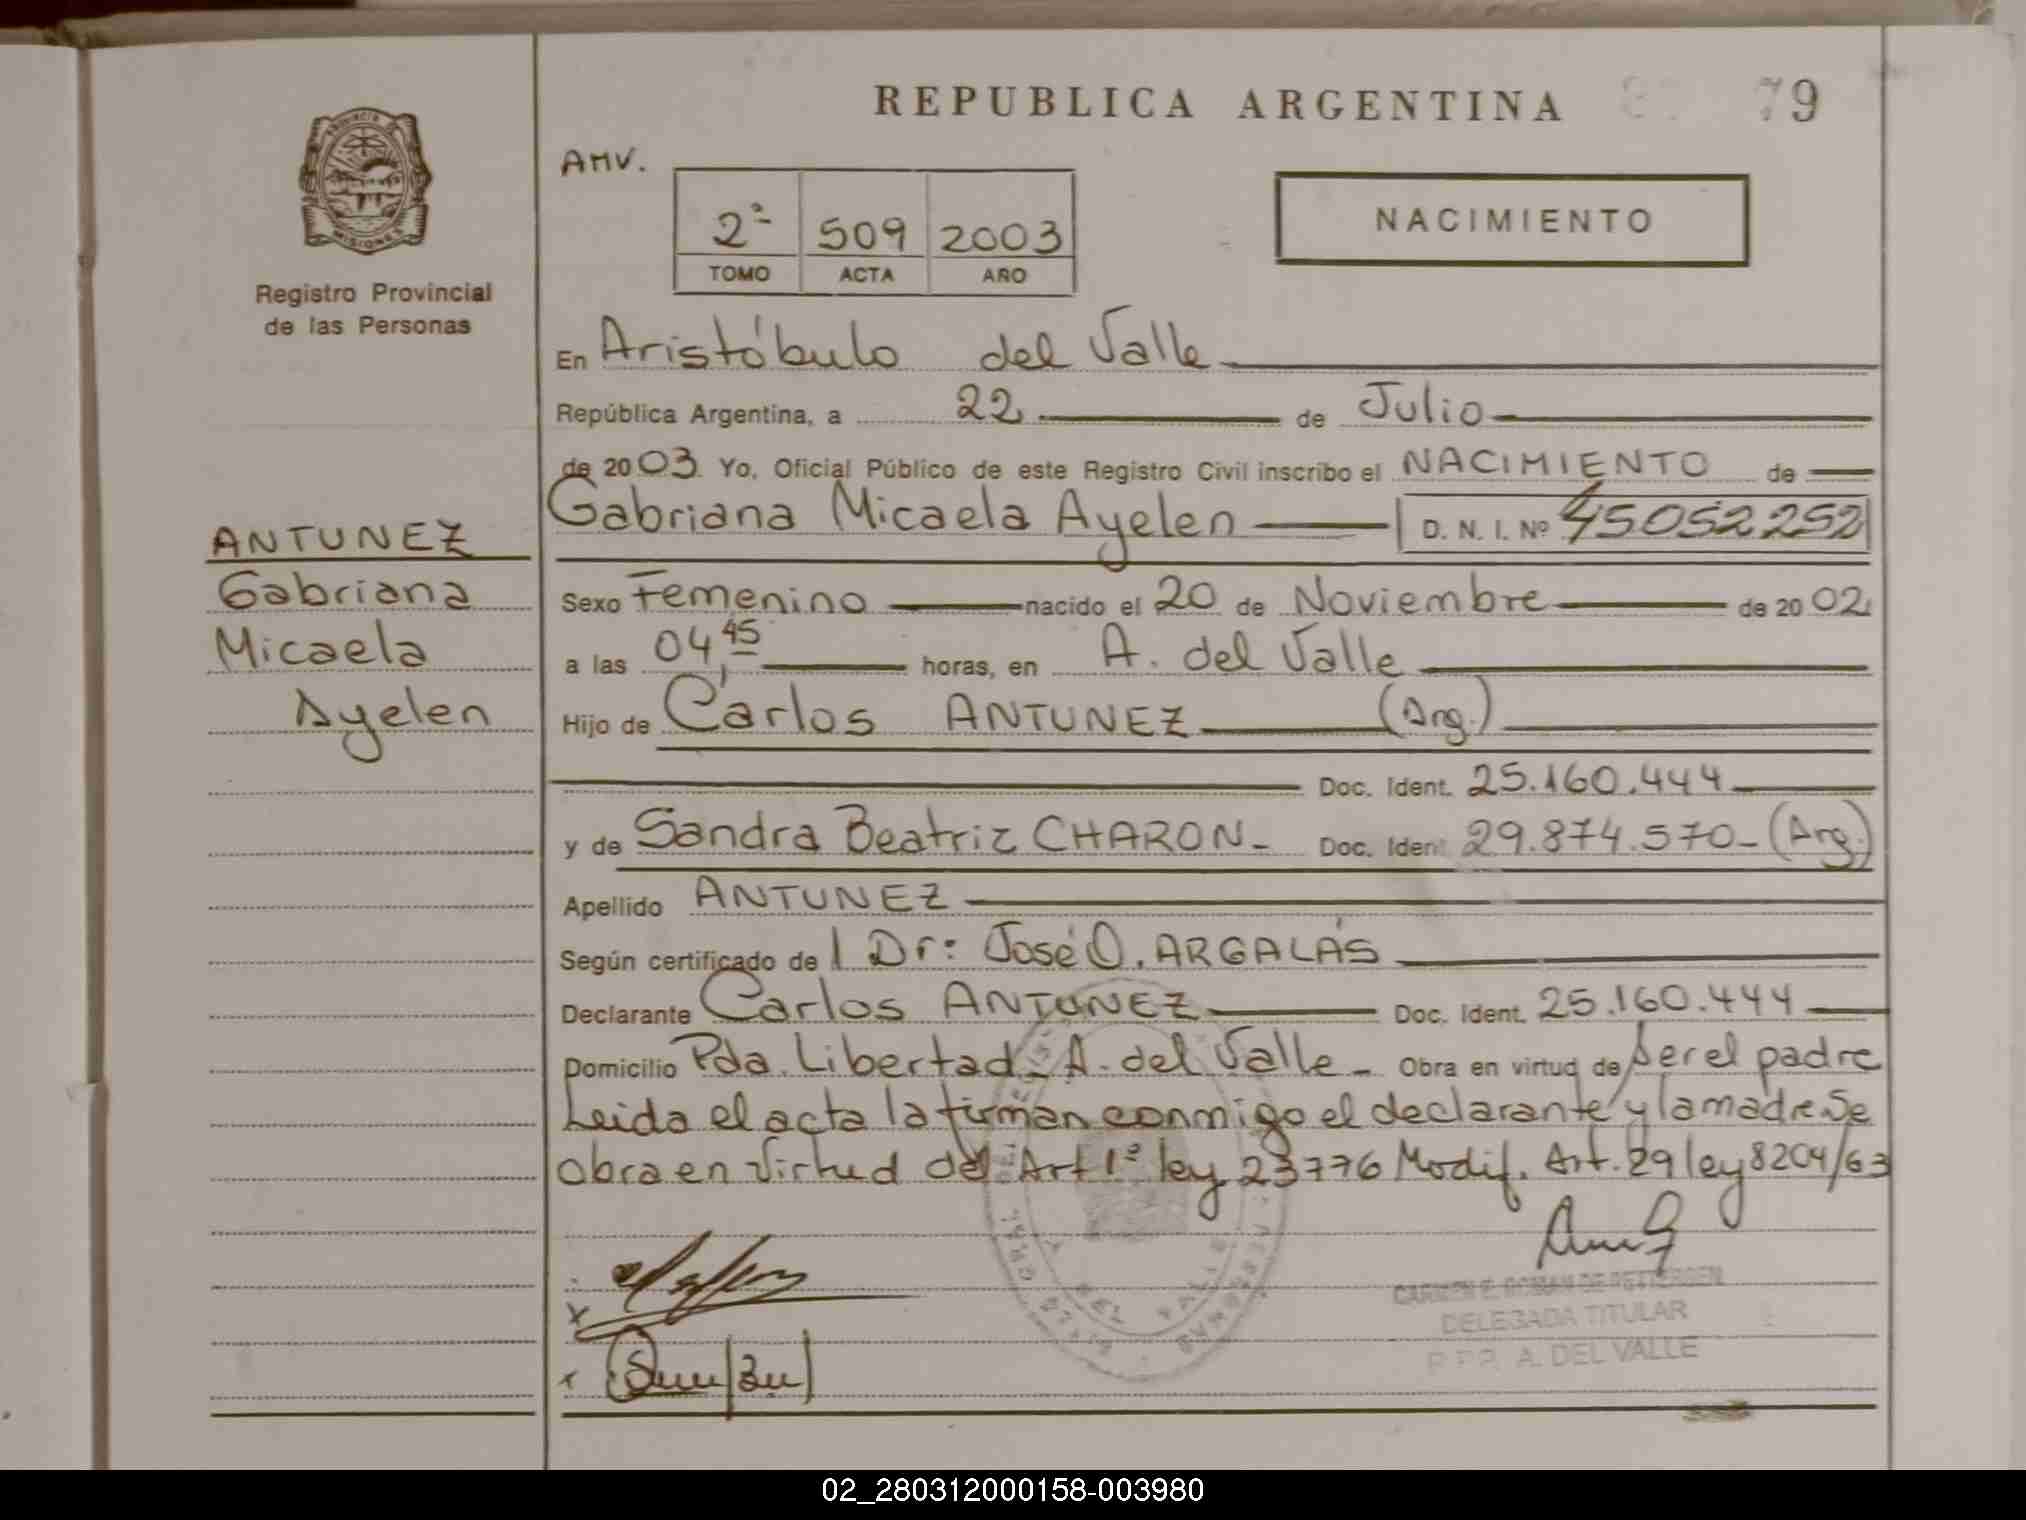 REPUBLICA ARGENTINA
79
PROVINCIA DE
MISIONES
Registro Provincial
de las Personas
AMV.
2ª 509 2003
TOMO ACTA AÑO
NACIMIENTO
En Aristóbulo del Valle
República Argentina, a 22 de Julio
de 2003 Yo, Oficial Público de este Registro Civil inscribo el NACIMIENTO de
Gabriana Micaela Ayelen D. N. I. Nº 45052252
ANTUNEZ
Gabriana
Micaela
Ayelen
Sexo Femenino nacido el 20 de Noviembre de 2002
a las 04,45 horas, en A. del Valle
Hijo de Carlos ANTUNEZ (Arg.)
Doc. Ident. 25.160.444
y de Sandra Beatriz CHARON- Doc. Ident. 29.874.570- (Arg.)
Apellido ANTUNEZ
Según certificado de l Dr: José O. ARGALÁS
Declarante Carlos ANTUNEZ Doc. Ident. 25.160.444
Domicilio Pda. Libertad- A. del Valle- Obra en virtud de ser el padre
Leida el acta la firman conmigo el declarante y la madre. Se
obra en virtud del Art 1º ley 23776 Modif. Art. 29 ley 8204/63
DELEGADA TITULAR
A. DEL VALLE
02_280312000158-003980